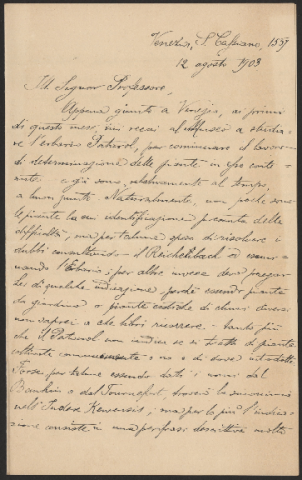 Venezia, S. Cassiano, 1857
12 agosto 1903
Ill. Signor Professore,
Appena giunto a Venezia, ai primi
di questo mese, mi recai al Museo a studia-
re l'erbario Paterol, per cominciare il lavoro
di determinazione delle piante in esso conte-
nute. e già sono, relativamente al tempo,
a buon punto. Naturalmente, non poche sono
le piante la cui identificazione presenta delle
difficoltà, ma per talune spero di risolvere i
dubbi consultando il Reichenbach od esami-
nando l'erbario; per altre invece dovrò pregar
La di qualche indicazione, perché essendo piante
da giardino o piante esotiche di climi diversi
non saprei a che libri ricorrere. tanto più
che il Paterol non indica se si tratti di piante
coltivate comunemente o no e di dove introdotte
Forse per talune essendo dati i nomi del
Bauhin o del Tournefort, troverò la sinonimia
nell'Index Kewensis; ma per lo più l'indica-
zione consiste in una perifrasi descrittiva molto